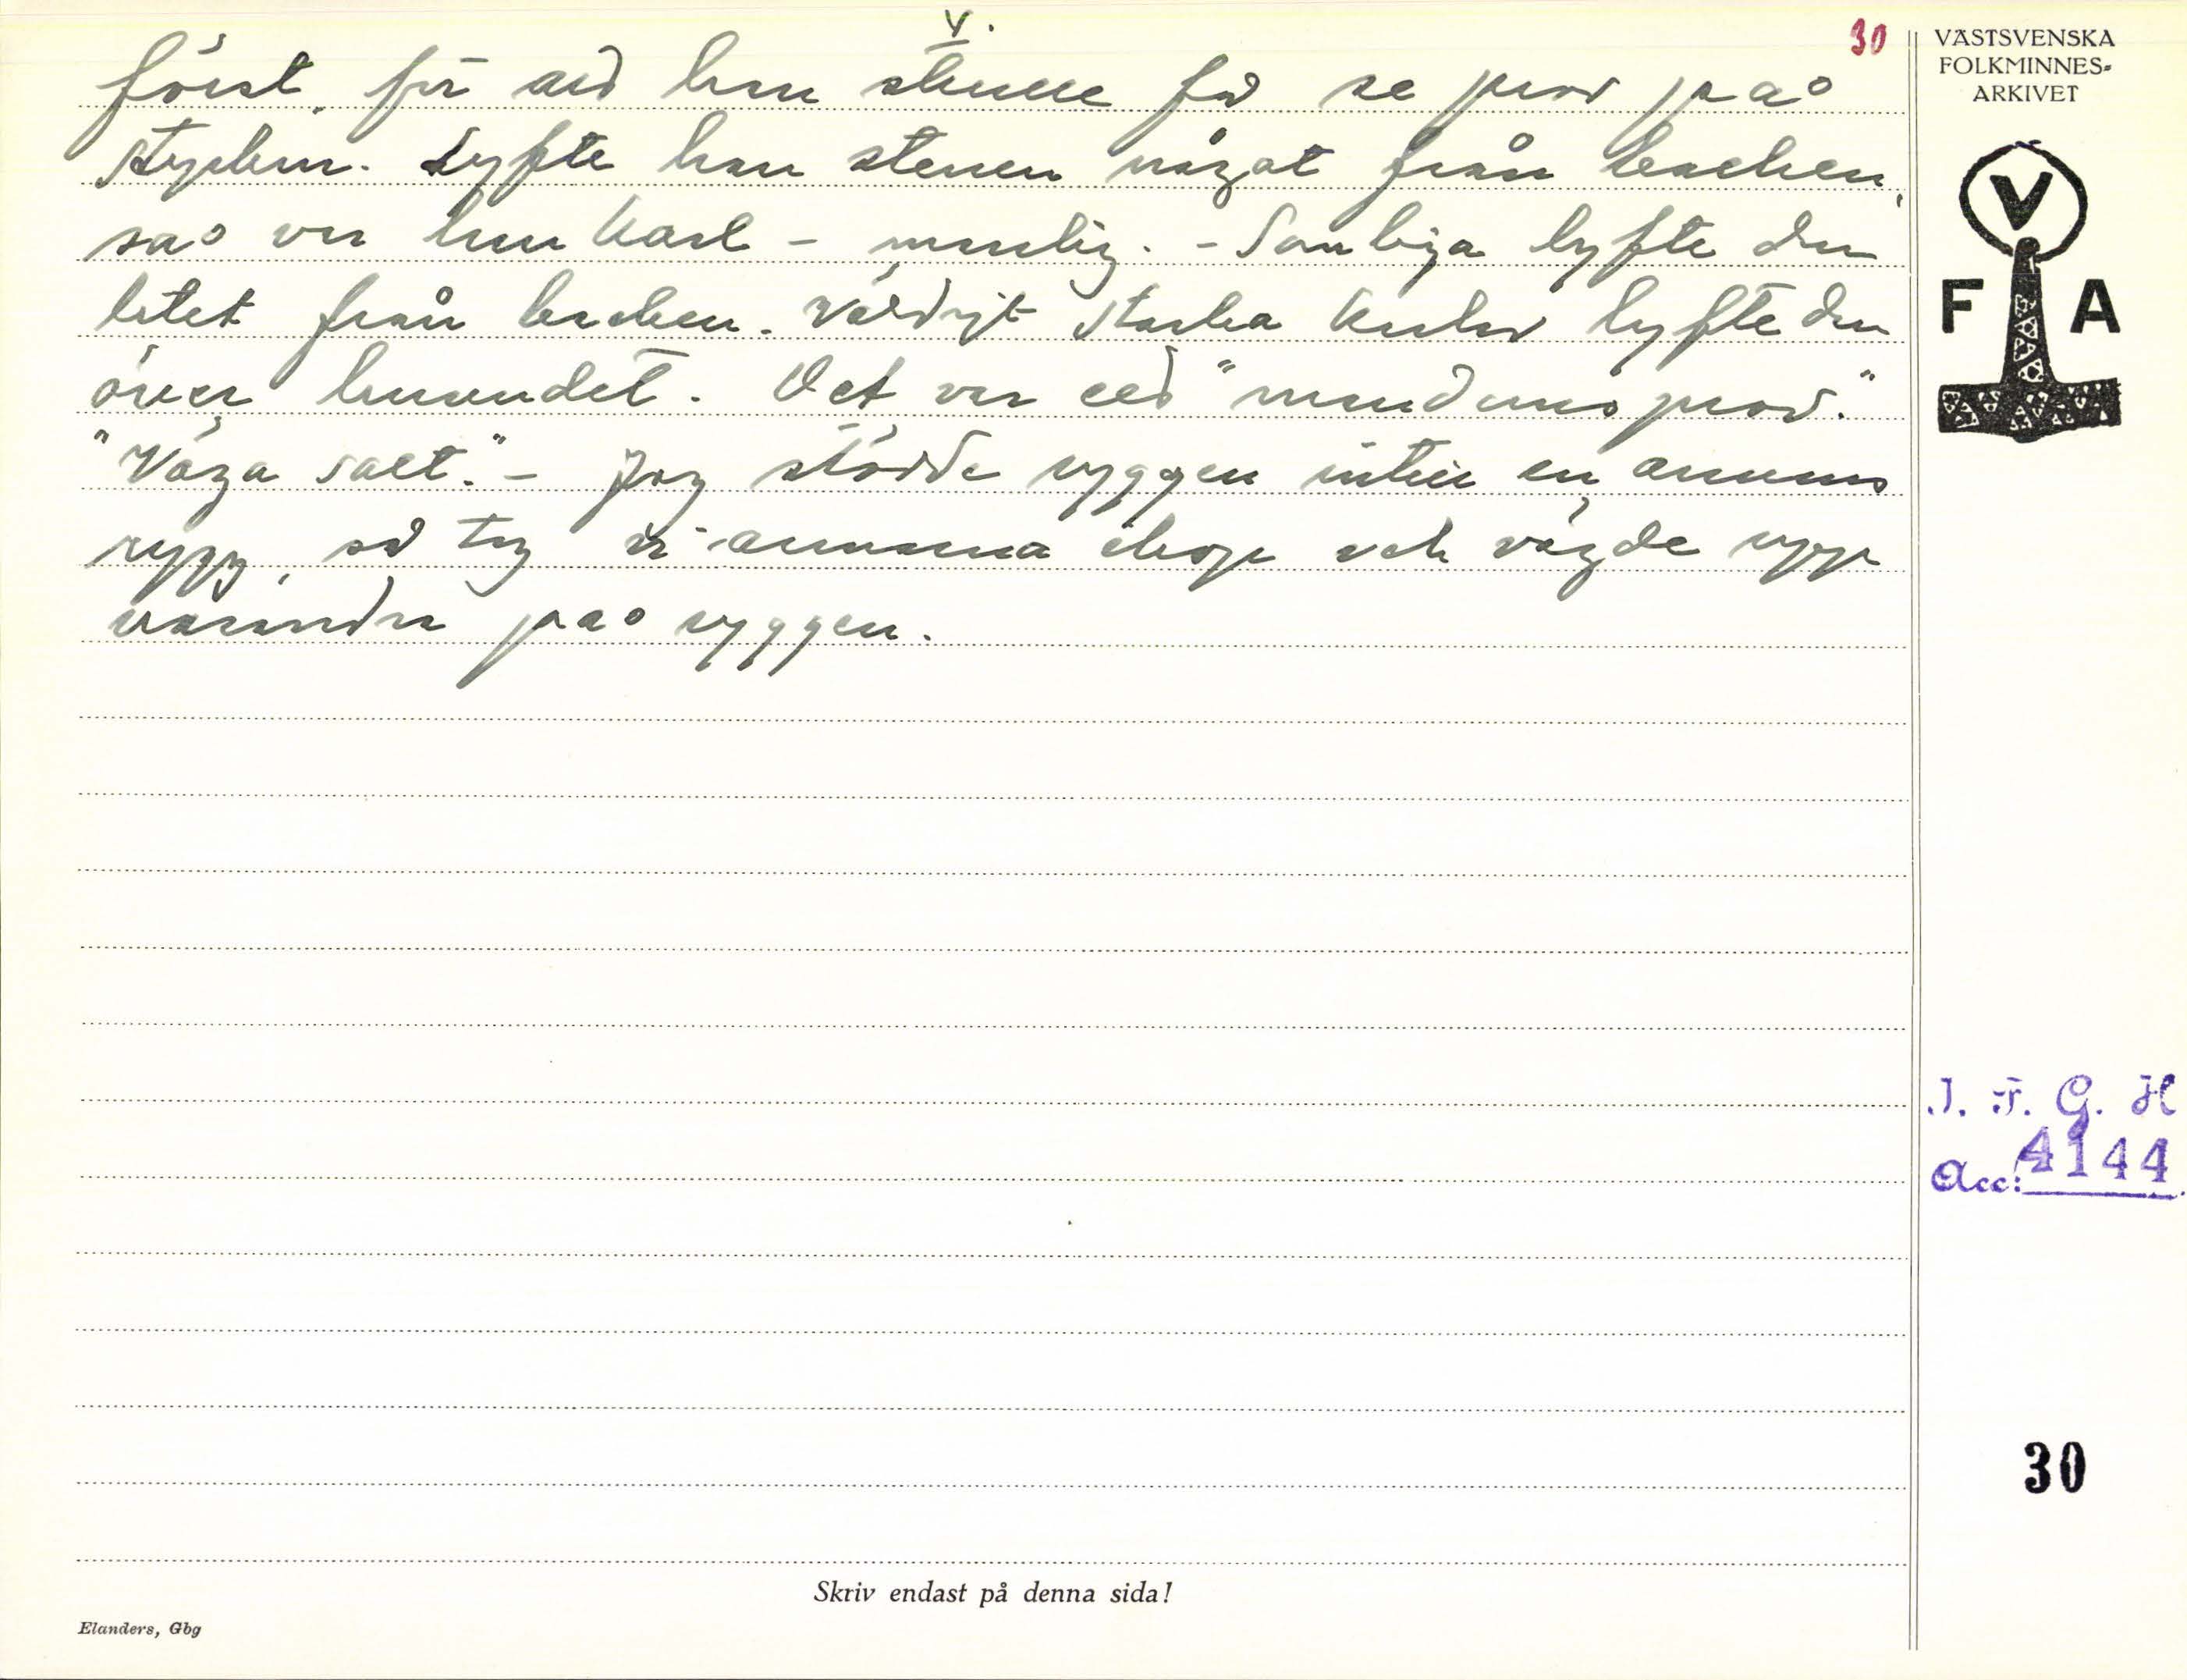 V.
30
först, för att han skulle få se prov på
styrkan. Lyfte han stenen något från backen,
så var han karl - manlig. - Somliga lyfte den
litet från backen. Väldigt starka karlar lyfte den
över huvudet. Det var ett "mandomsprov."
"Väga salt." - Jag stödde ryggen intill en annans
rygg, så tog vi armarna ihop och vägde upp
varandra på ryggen.
VÄSTSVENSKA
FOLKMINNES=
ARKIVET
V
F A
I. F. G. H
Acc: 4144
30
Skriv endast på denna sida!
Elanders, Gbg